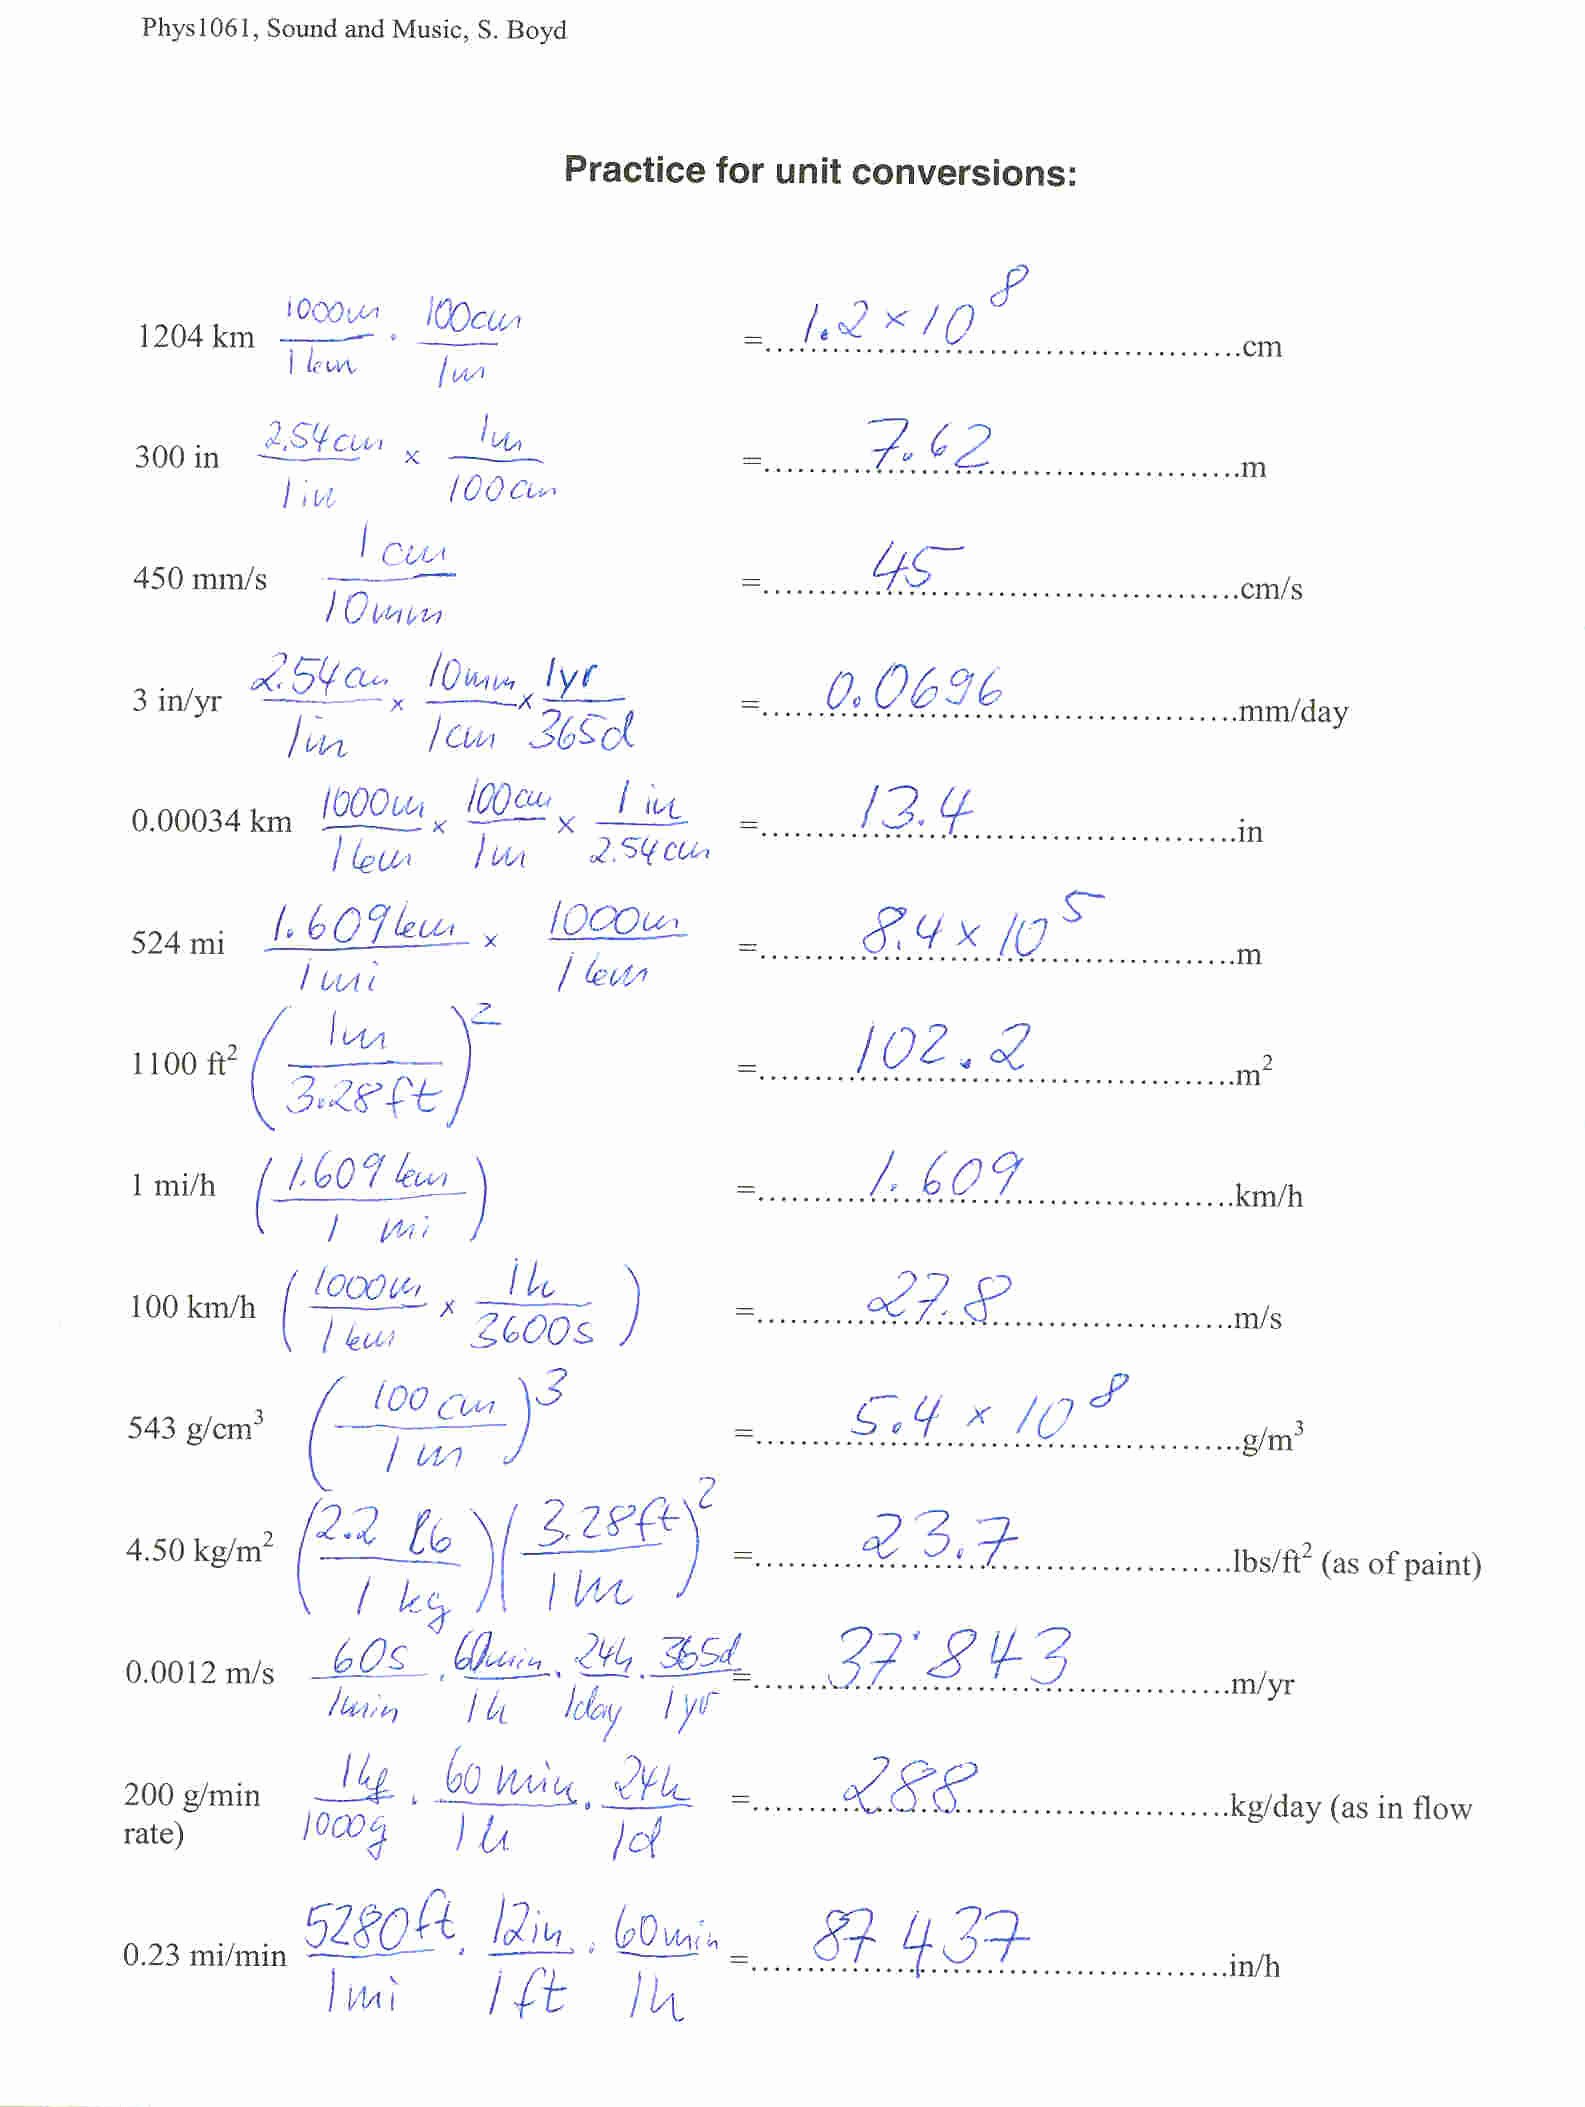 Phys1061, Sound and Music, S. Boyd
Practice for unit conversions:
1204 km 1000m/1km · 100cm/1m = 1.2 × 10^8 cm
300 in 2.54cm/1in × 1m/100cm = 7.62 m
450 mm/s 1cm/10mm = 45 cm/s
3 in/yr 2.54cm/1in × 10mm/1cm × 1yr/365d = 0.0696 mm/day
0.00034 km 1000m/1km × 100cm/1m × 1in/2.54cm = 13.4 in
524 mi 1.609km/1mi × 1000m/1km = 8.4 × 10^5 m
1100 ft² (1m/3.28ft)² = 102.2 m²
1 mi/h (1.609km/1mi) = 1.609 km/h
100 km/h (1000m/1km × 1h/3600s) = 27.8 m/s
543 g/cm³ (100cm/1m)³ = 5.4 × 10^8 g/m³
4.50 kg/m² (2.2 lb/1 kg)(3.28ft/1m)² = 23.7 lbs/ft² (as of paint)
0.0012 m/s 60s/1min · 60min/1h · 24h/1day · 365d/1yr = 37'843 m/yr
200 g/min 1kg/1000g · 60min/1h · 24h/1d = 288 kg/day (as in flow
rate)
0.23 mi/min 5280ft/1mi · 12in/1ft · 60min/1h = 87 437 in/h